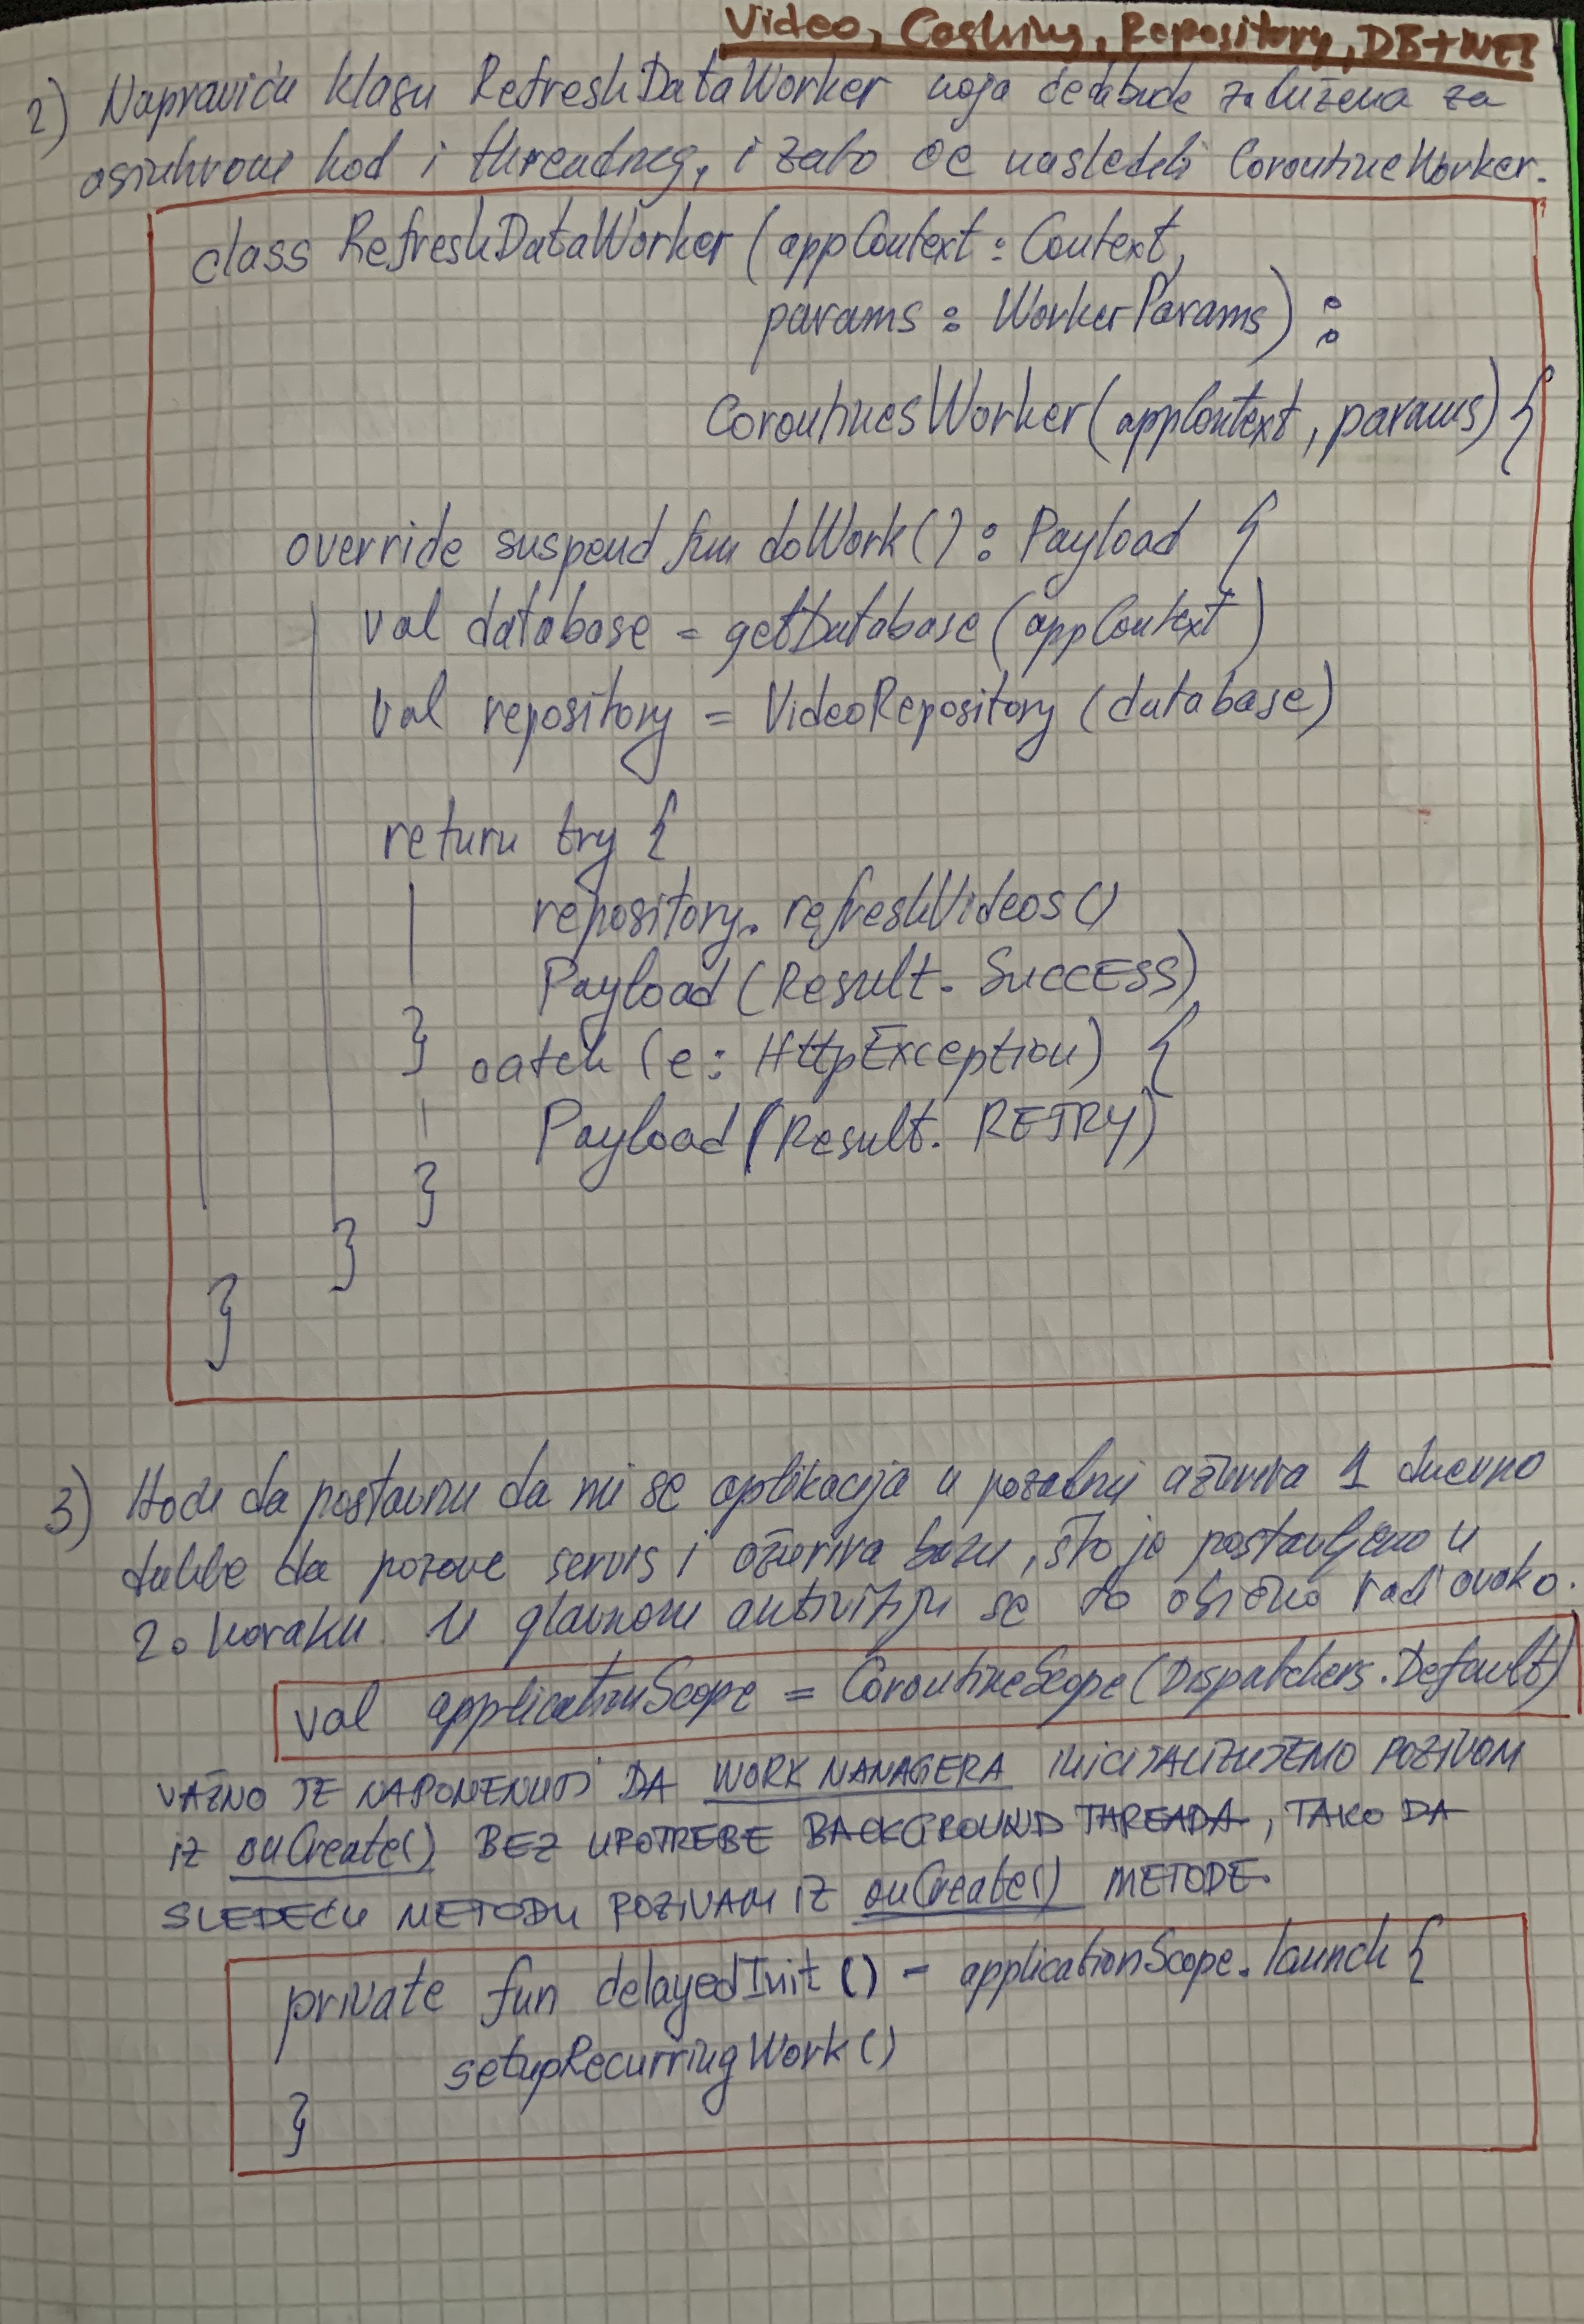 Video, Cashing, Repository, DB+NET
2) Napraviću klasu RefreshDataWorker koja će da bude zadužena za
asinhroni kod i threading, i zato će naslediti CoroutineWorker.
class RefreshDataWorker (appContext : Context,
params : WorkerParams) :
CoroutinesWorker(appContext, params) {
override suspend fun doWork() : Payload {
val database = getDatabase (appContext)
val repository = VideoRepository (database)
return try {
repository. refreshVideos ()
Payload (Result. SUCCESS)
} catch (e: HttpException) {
Payload (Result. RETRY)
}
}
}
3) Hoću da postavim da mi se aplikacija u pozadini ažurira 1 dnevno
takođe da pozove servis i ažurira bazu, što je postavljeno u
2. koraku. U glavnom aktivitiju se to obično radi ovako.
val applicationScope = CoroutineScope (Dispatchers.Default)
VAŽNO JE NAPOMENUTI DA WORK MANAGERA INICIJALIZUJEMO POZIVOM
IZ onCreate() BEZ UPOTREBE BACKGROUND THREADA, TAKO DA
SLEDEĆU METODU POZIVAM IZ onCreate() METODE.
private fun delayedInit () - applicationScope. launch {
setupRecurringWork ()
}